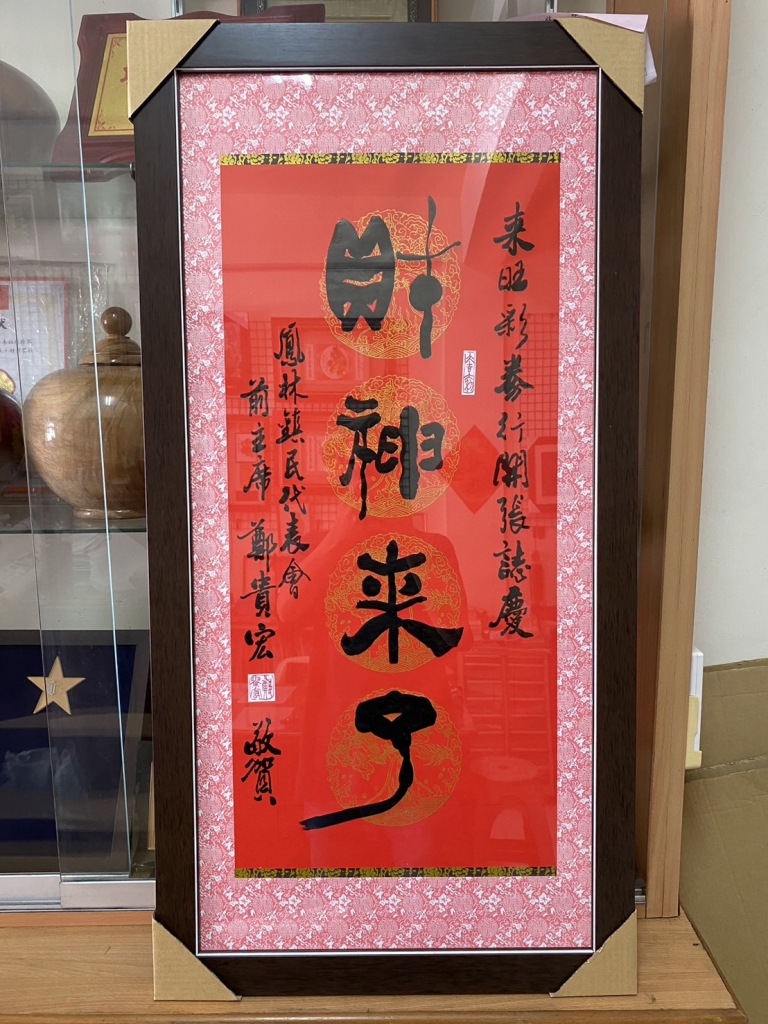 来旺彩券行開張誌慶
財神来了
鳳林鎮民代表會
前主席 鄭貴宏 敬賀